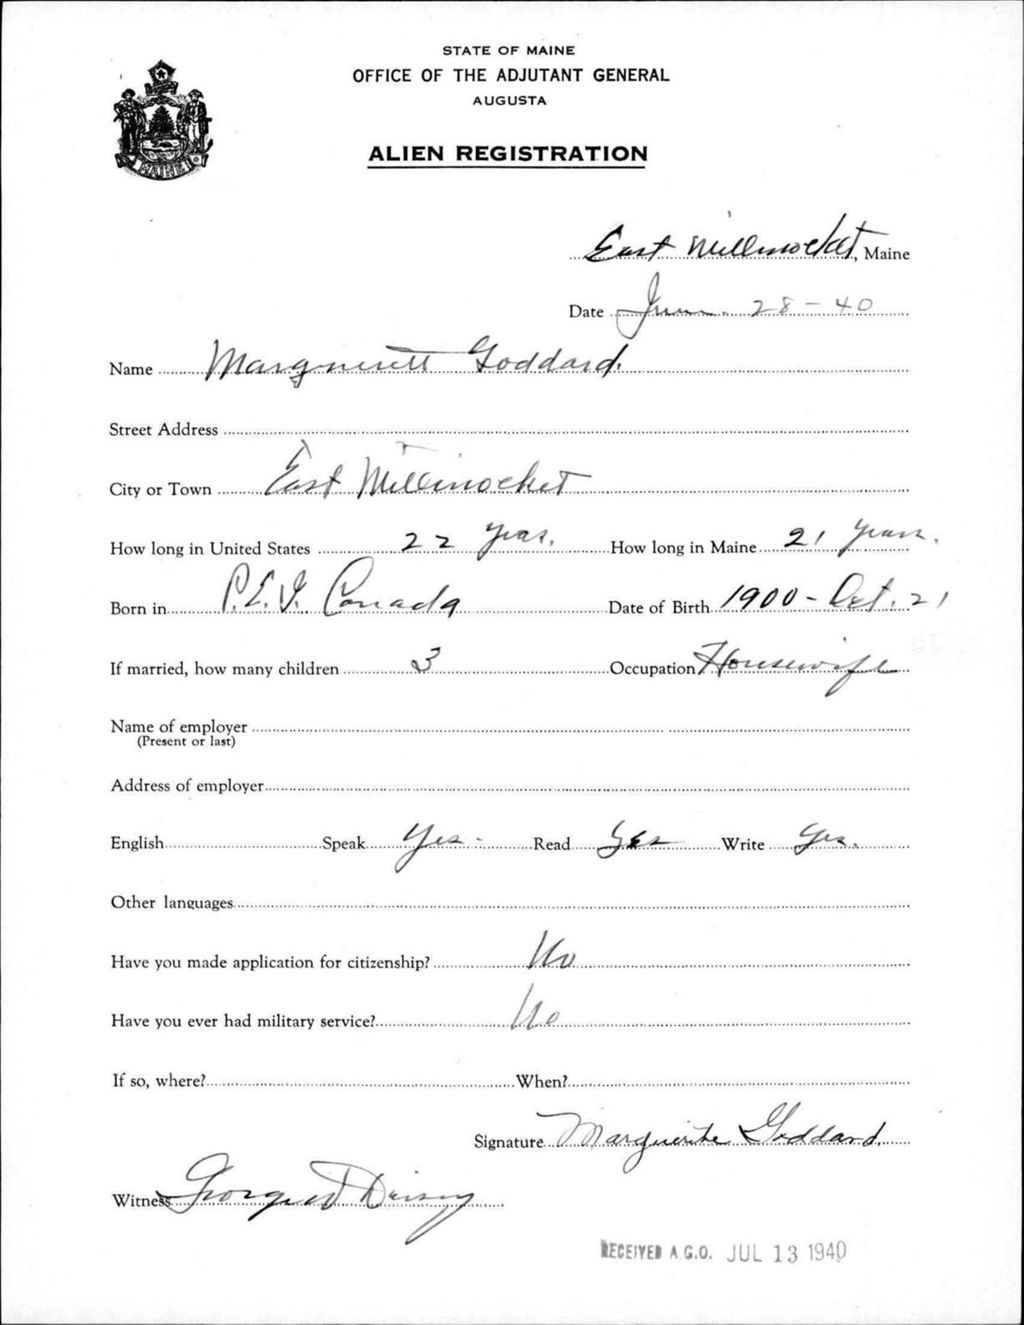 STATE OF MAINE
OFFICE OF THE ADJUTANT GENERAL
AUGUSTA
ALIEN REGISTRATION
MAINE
East Millinocket, Maine
Date June 28-40
Name Marguerett Goddard.
Street Address
City or Town East Millinocket
How long in United States 22 years. How long in Maine 21 years.
Born in P.E.I. Canada Date of Birth 1900 - Oct. 21
If married, how many children 3 Occupation Housewife
Name of employer
(Present or last)
Address of employer
English Speak Yes - Read Yes Write Yes.
Other languages
Have you made application for citizenship? No
Have you ever had military service? No
If so, where? When?
Signature Marguerite Goddard.
Witness George W
RECEIVED A.G.O. JUL 13 1940